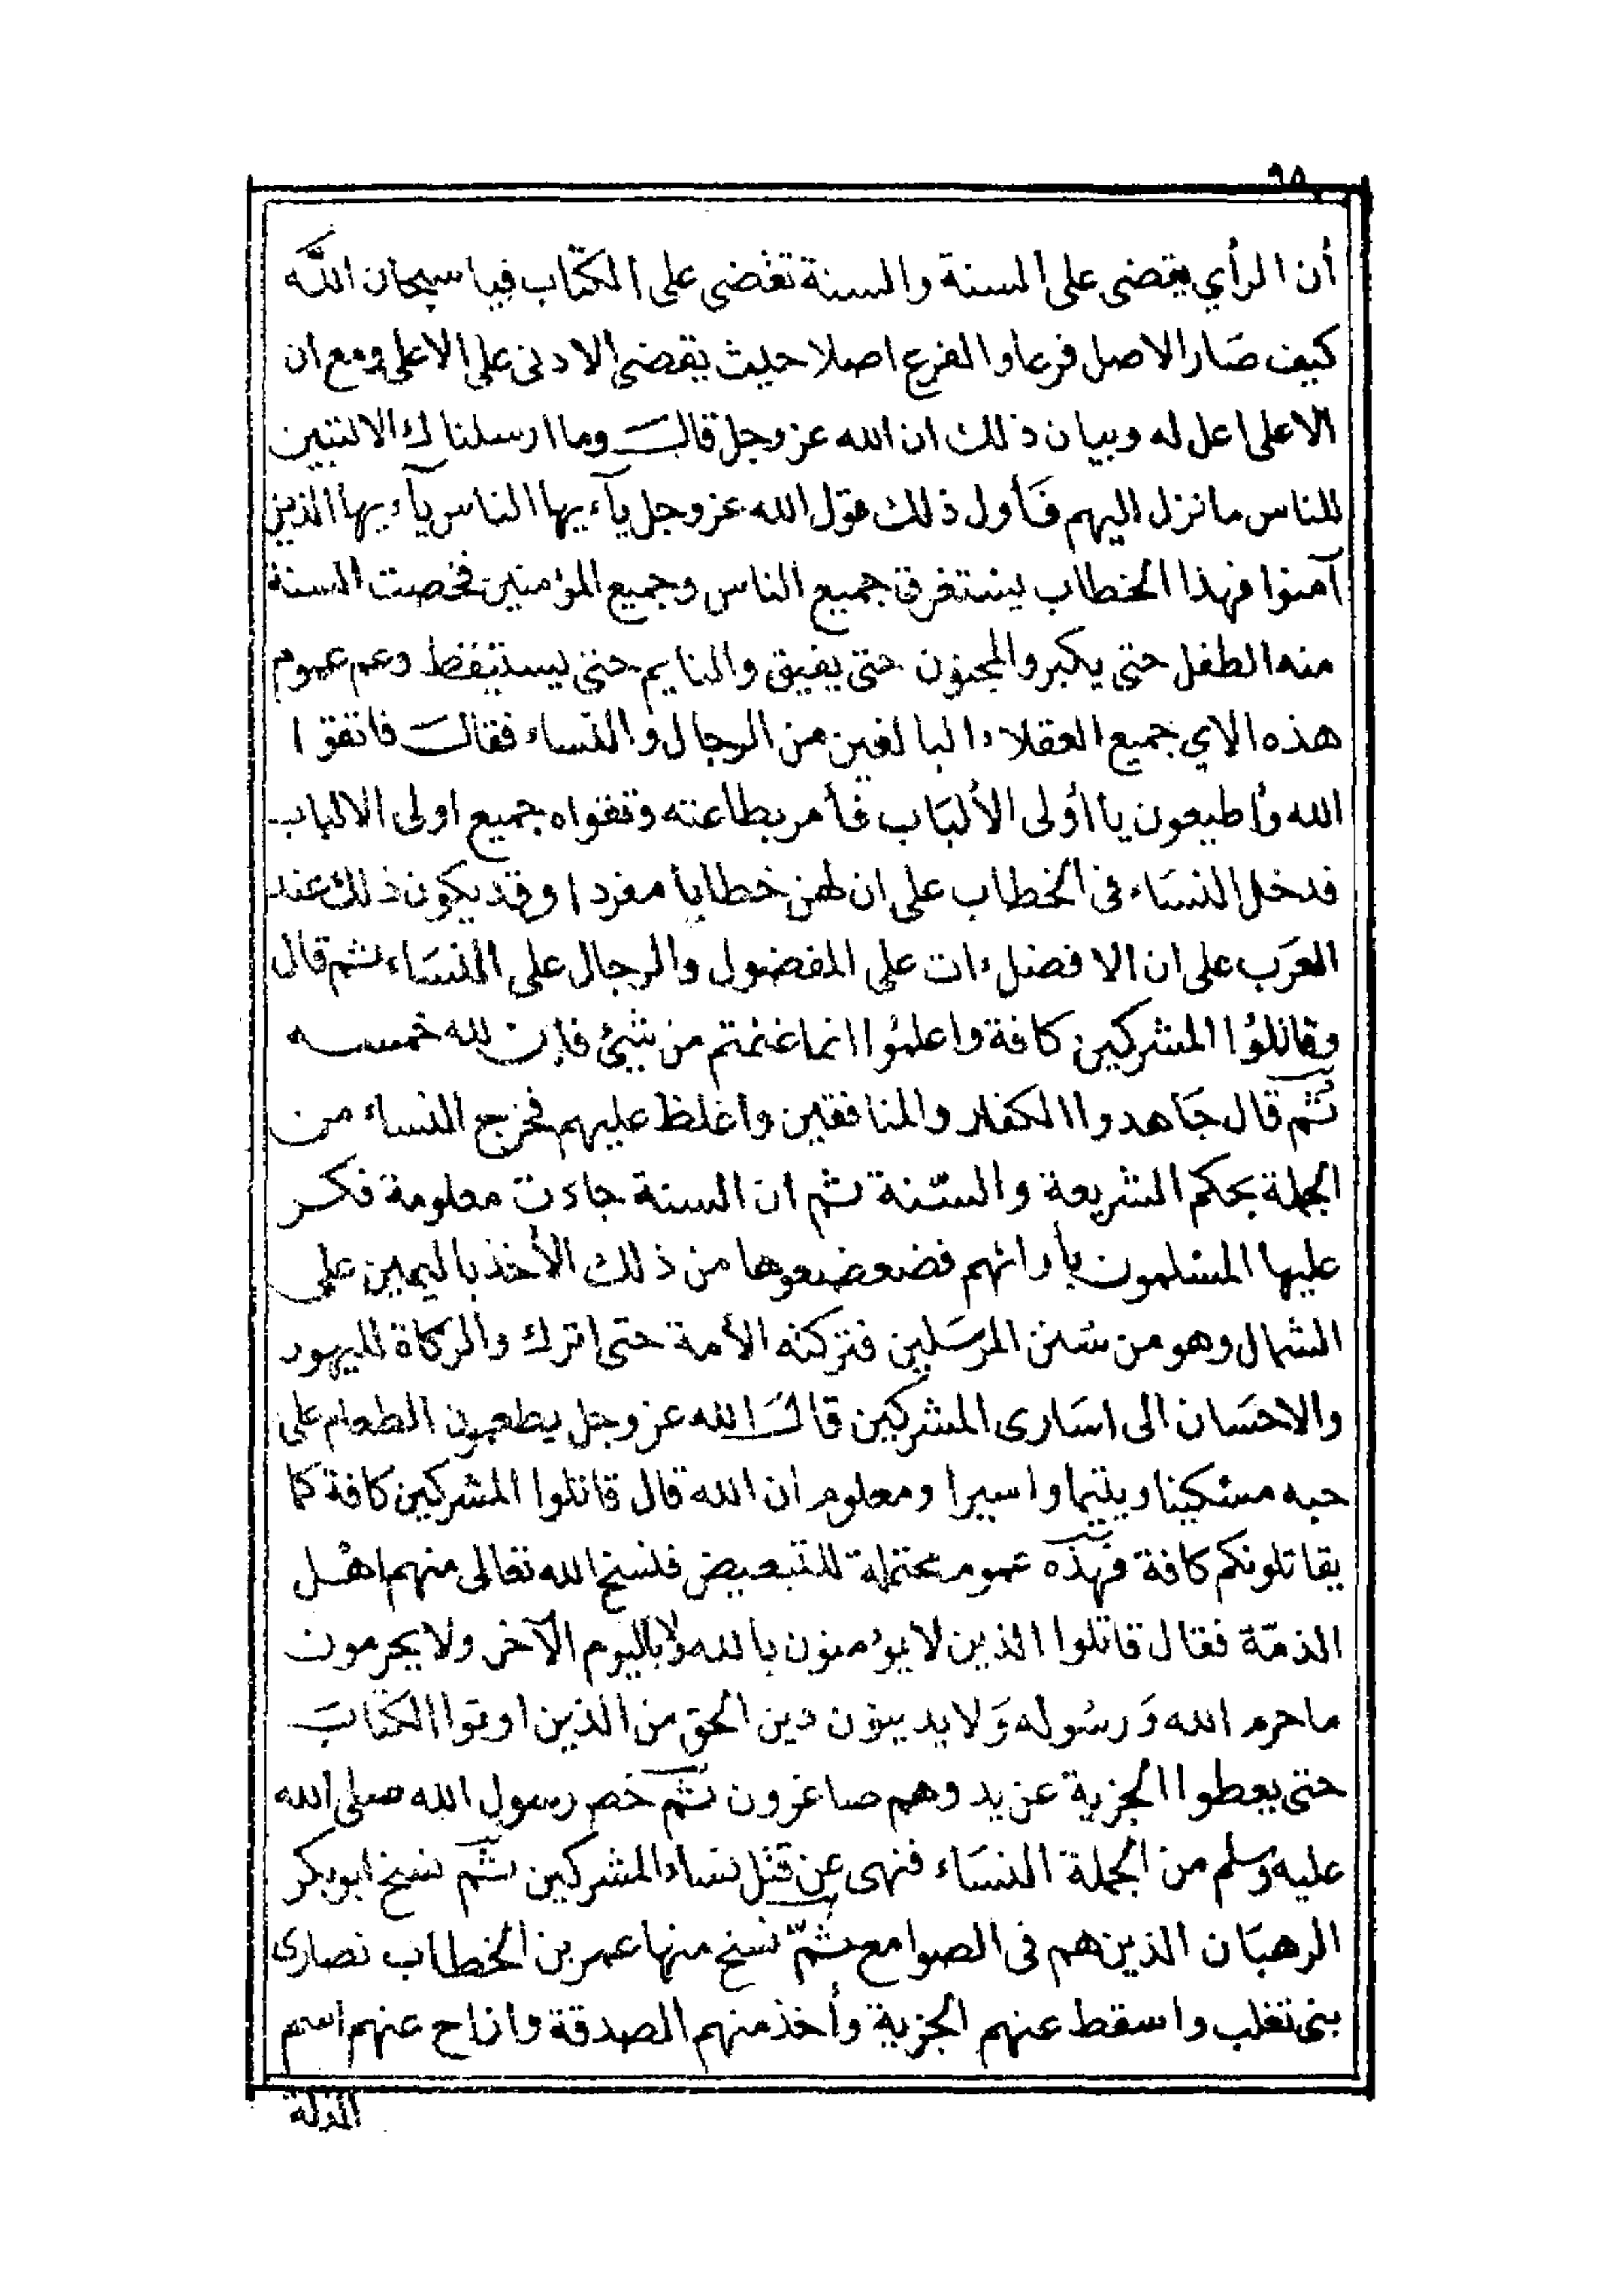 ٦٥
أن الرأي يقضى على السنة والسنة تقضى على الكتاب فيا سبحان اللَّه
كيف صَار الاصل فرعا والفرع اصلا حيث يقضى الادنى على الاعلى ومع ان
الاعلى اعل له وبيان ذلك ان الله عز وجل قالَ وما ارسلناك الا لتبين
للناس ما نزل اليهم فَأول ذلك قول الله عز وجل يآءيها الناس يآءيها الذين
آمنوا فهذا الخطاب يستغرق جميع الناس وجميع المؤمنين فخصت السنة
منه الطفل حتى يكبر والمجنون حتى يفيق والنايم حتى يستيقظ وعم عموم
هذه الاي جميع العقلاء البالغين من الرجال والنّساء فقالَ فاتقوا
الله وأطيعون يا اؤلى الألبَاب فأمر بطاعته وتقواه جميع اولى الالباب
فدخل النسَاء فى الخطاب على ان لهن خطابا مفردا وقد يكون ذلك عند
العرَب على ان الافضل ءات على المفضول والرجال على النسَاء ثم قال
وقاتلوُا المشركين كافة واعلموُا انما غنمتم من شيئ فإن لله خمسه
ثَم قال جَاهدوا الكفار والمنافقين واغلظ عليهم فخرج النساء من
الجملة بحكم الشريعة والسّنة ثم ان السنة جاءت معلومة فكر
عليها المسْلمون بأرائهم فضعضعوها من ذلك الأخذ باليمين على
الشمال وهو من سُنن المرسَلين فتركته الأمة حتى اترك والزكاة لليهود
والاحسَان الى اسَارى المشركين قالَ الله عز وجل يطعمون الطعام على
حبه مسْكينا ويتيما واسيرا ومعلوم ان الله قال قاتلوا المشركين كافة كما
يقاتلونكم كافة فهذه عموم محتملة للتبعيض فنسخ الله تعالى منهم اهْل
الذمّة فقال قاتلوا الذين لا يؤمنون بالله ولا باليوم الآخر ولا يحرمون
ما حرم الله وَرسُوله وَلا يدينون دين الحق من الذين اوتوا الكتابَ
حتى يعطوا الجزية عن يد وهم صاغرون ثَم خص رسول الله صلى الله
عليه وسلم من الجملة النسَاء فنهى عن قتل نساء المشركين ثَم نسخ ابو بكر
الرهبَان الذين هم فى الصوامع ثُمّ نسخ منها عمر بن الخطاب نصارى
بنى تغلب واسقط عنهم الجزية وأخذ منهم الصدقة وازاح عنهم اسم
المذلة